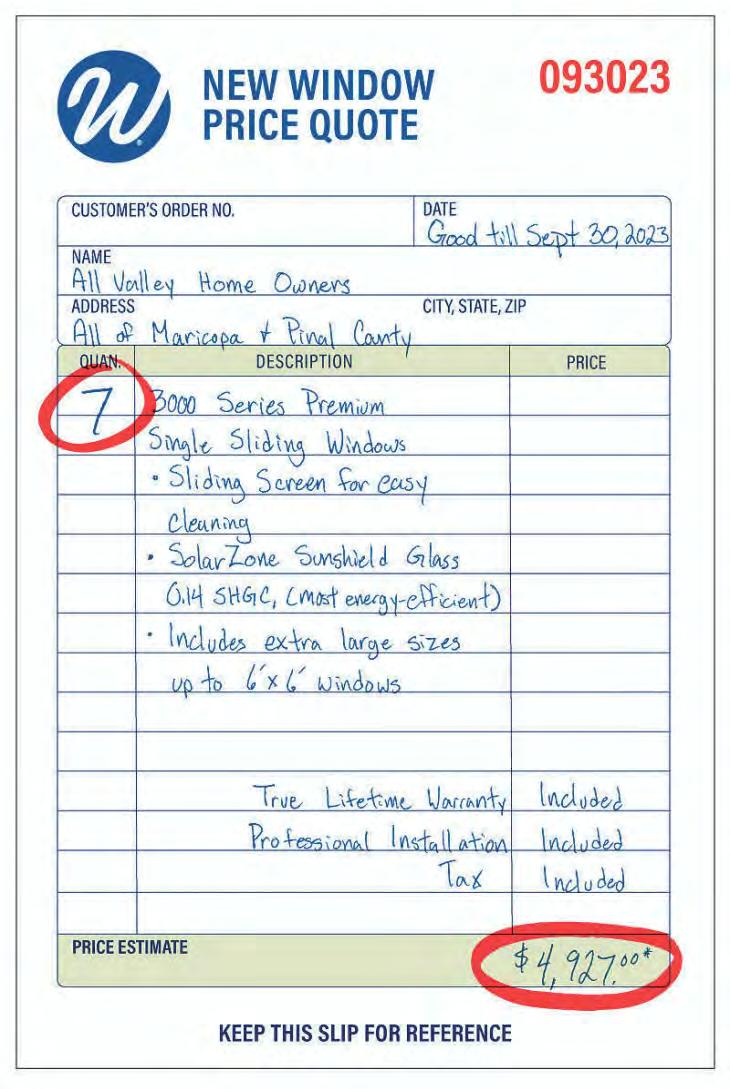 W
NEW WINDOW
PRICE QUOTE
093023
CUSTOMER'S ORDER NO.
DATE
Good till Sept 30, 2023
NAME
All Valley Home Owners
ADDRESS
CITY, STATE, ZIP
All of Maricopa & Pinal County
QUAN. DESCRIPTION PRICE
7 3000 Series Premium
Single Sliding Windows
• Sliding Screen for easy
cleaning
• SolarZone Sunshield Glass
0.14 SHGC, (most energy-efficient)
• Includes extra large sizes
up to 6'x6' windows
True Lifetime Warranty Included
Professional Installation Included
Tax Included
PRICE ESTIMATE $4,927.00*
KEEP THIS SLIP FOR REFERENCE